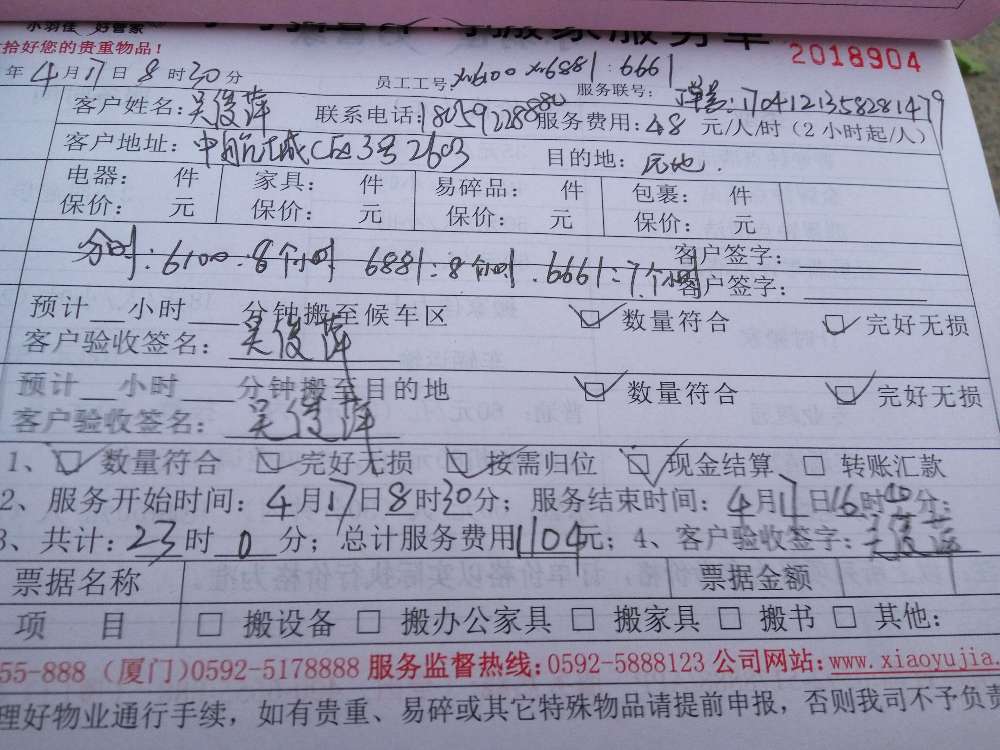 小羽佳 好管家 搬家服务单
拾好您的贵重物品！ 2018904
年4月17日8时30分 员工工号:xm6100 xm6881:6661 服务联号:
客户姓名:吴俊萍 联系电话:18059228880 服务费用:48元/人/时(2小时起/人) 单号:1704121358281479
客户地址:中航城C区3号2603 目的地:原地.
电器: 件 家具: 件 易碎品: 件 包裹: 件
保价: 元 保价: 元 保价: 元 保价: 元
分时:6100:8个小时 6881:8个小时.6661:7个小时 客户签字:
客户签字:
预计 小时 分钟搬至候车区 数量符合 完好无损
客户验收签名:吴俊萍
预计 小时 分钟搬至目的地 数量符合 完好无损
客户验收签名:吴俊萍
1、数量符合 完好无损 按需归位 现金结算 转账汇款
2、服务开始时间:4月17日8时30分;服务结束时间:4月17日16时40分;
3、共计:23时0分;总计服务费用1104元;4、客户验收签字:吴俊萍
票据名称 票据金额
项 目 搬设备 搬办公家具 搬家具 搬书 其他:
55-888 (厦门)0592-5178888 服务监督热线:0592-5888123 公司网站:www.xiaoyujia.
理好物业通行手续，如有贵重、易碎或其它特殊物品请提前申报，否则我司不予负责